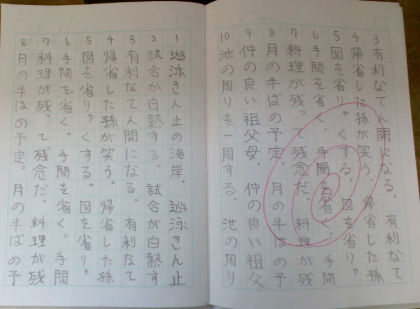 3 有利なてん開になる。 有利な
4 帰省した孫が笑う。 帰省した孫
5 図を省りゃくする。 図を省りゃ
6 手間を省く。 手間を省く。 手間
7 料理が残って残念だ。 料理が残
8 月の半ばの予定。 月の半ばの予
9 仲の良い祖父母。 仲の良い祖
10 池の周りを一周する。 池の周り
1 遊泳きん止の海岸。 遊泳きん止
2 試合が白熱する。 試合が白熱す
3 有利なてん開になる。 有利なて
4 帰省した孫が笑う。 帰省した孫
5 図を省りゃくする。 図を省りゃ
6 手間を省く。 手間を省く。 手間
7 料理が残って残念だ。 料理が残
8 月の半ばの予定。 月の半ばの予